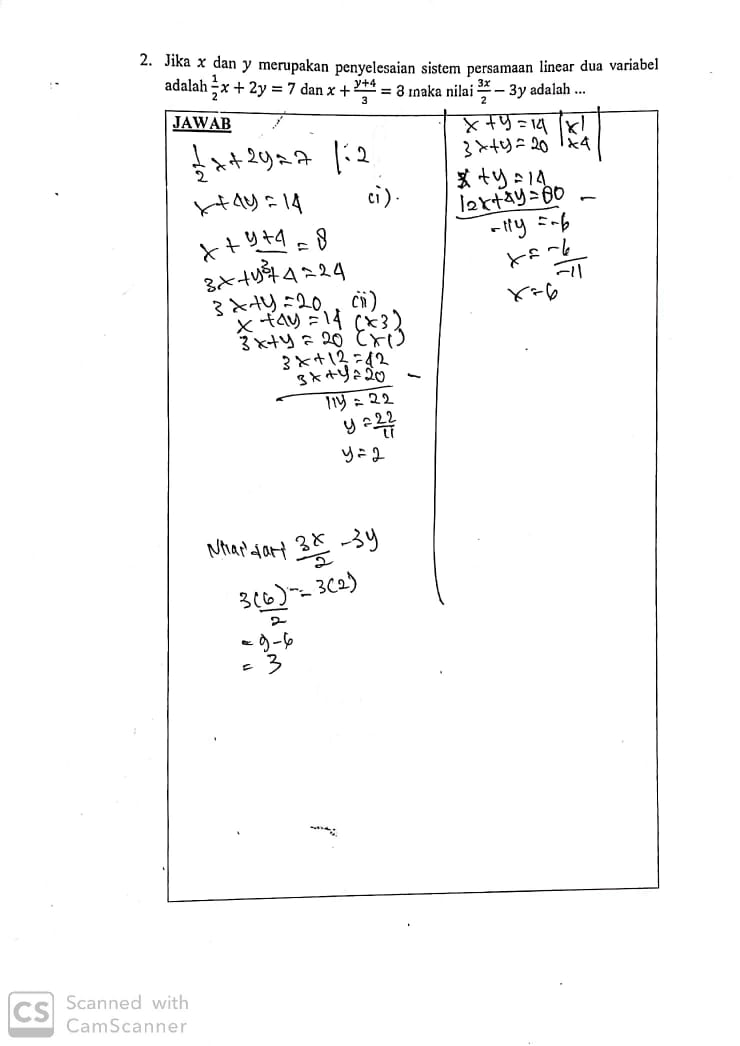 2. Jika x dan y merupakan penyelesaian sistem persamaan linear dua variabel
adalah 1/2 x + 2y = 7 dan x + (y+4)/3 = 8 maka nilai 3x/2 − 3y adalah ...
JAWAB
1/2 x + 2y = 7 |: 2
x + 4y = 14 (i).
x + y+4/3 = 8
3x + y + 4 = 24
3x + y = 20 (ii)
x + 4y = 14 (x3)
3x + y = 20 (x1)
3x + 12 = 42
3x + y = 20 −
11y = 22
y = 22/11
y = 2
3x/2 - 3y
3(6)/2 - 3(2)
= 9-6
= 3
x + y = 14 |x1|
3x + y = 20 |x4|
x + y = 14
12x + 4y = 80 −
-11y = -6
x = -6/-11
x = 6
CS Scanned with
CamScanner